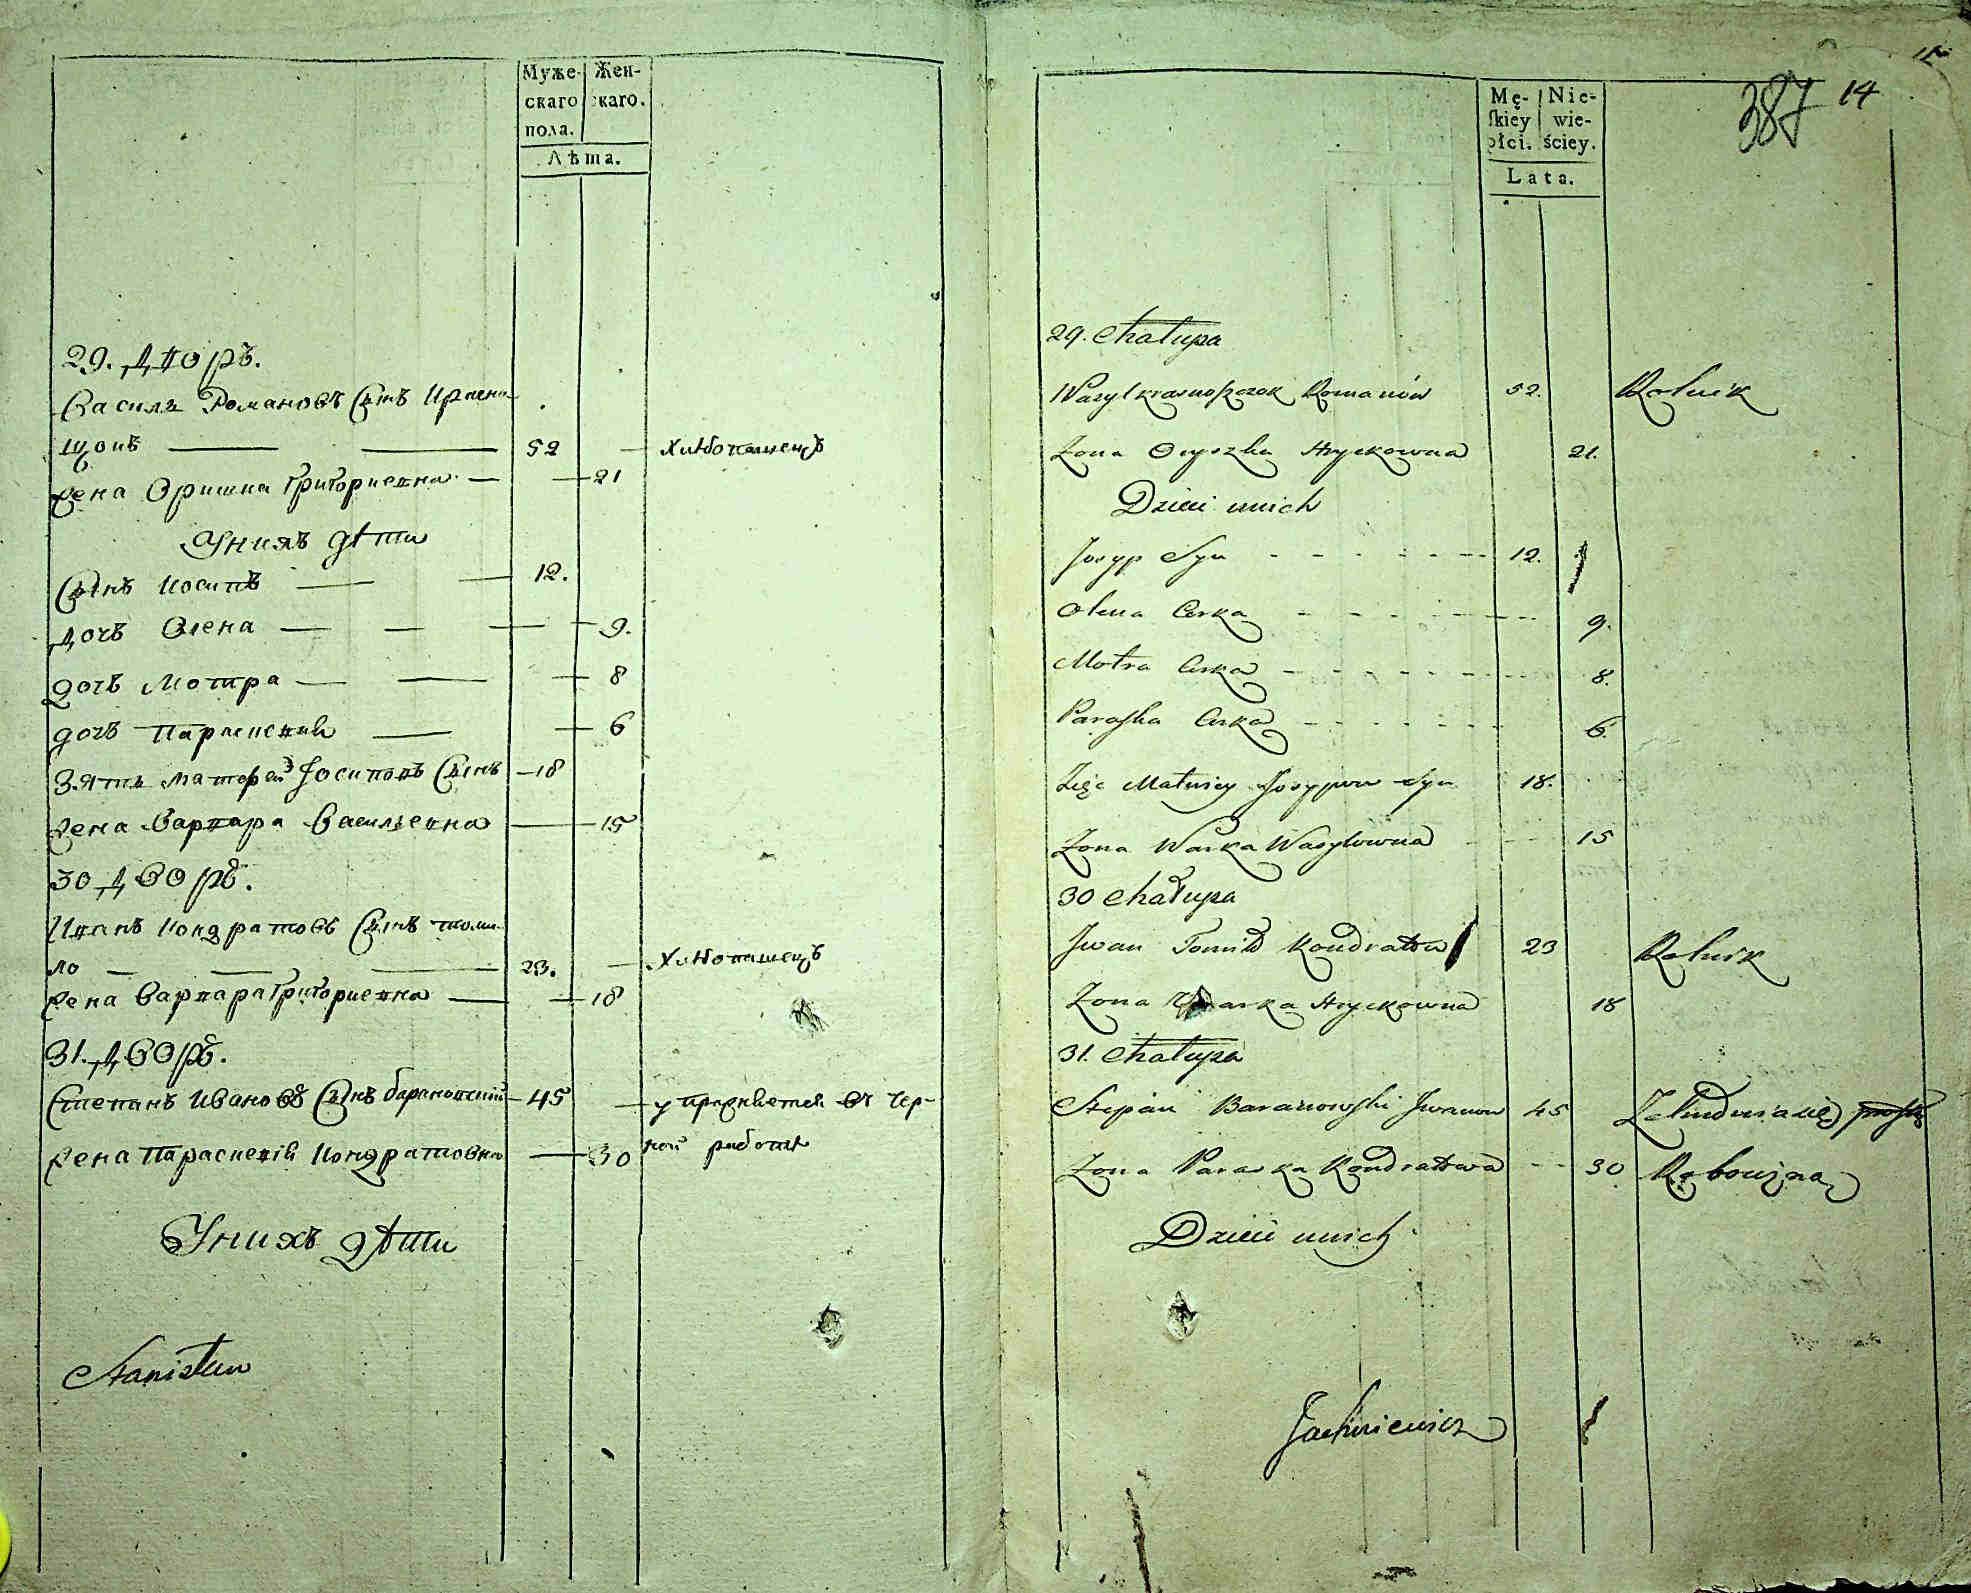 Муже- Жен-
скаго скаго.
пола.
Лѣта.
29. Дворъ.
Василь Романовъ Сынъ Красно
щокъ 52 Хлѣбопашецъ
жена Оришка Григориевна 21
У нихъ дѣти
Сынъ Иосипъ 12.
Дочъ Олена 9.
дочъ Мотра 8
дочъ Параскевия 6
Зять Матфей Иосиповъ Сынъ 18
жена Варвара Васильевна 15
30 Дворъ.
Иванъ Кондратовъ Сынъ томи-
ло 23. Хлѣбопашецъ
жена Варвара Григориевна 18
31. Дворъ.
Степанъ Ивановъ Сынъ барановский 45 упражняется въ чер-
жена Параскевiя Кондратовна 30 ной работѣ
У нихъ дѣти
Stanisław
387 14
Mę- Nie-
ſkiey wie-
płci. ściey.
Lata.
29. Chałupa
Wasyl Krasnoszczok Romanów 52. Rolnik
Żona Oryszka Hryckowna 21.
Dzieci u nich
Josyp Syn 12.
Olena Corka 9.
Motra Corka 8.
Paraſka Corka 6.
Zięć Matwiey Josypow Syn 18.
Żona Warka Wasylowna 15
30 Chałupa
Jwan Tomiło Kondratow 23 Rolnik
Żona Warka Hryckowna 18
31. Chałupa
Stepan Baranowſki Jwanow 45
Żona Paraska Kondratowa 30 Robocizną
Dzieci u nich
Jachniewicz